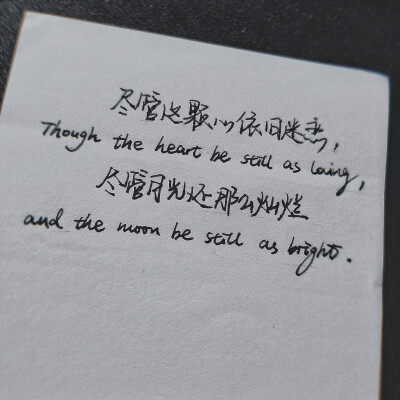 尽管这颗心依旧迷恋，
Though the heart be still as loving,
尽管月光还那么灿烂
and the moon be still as bright.